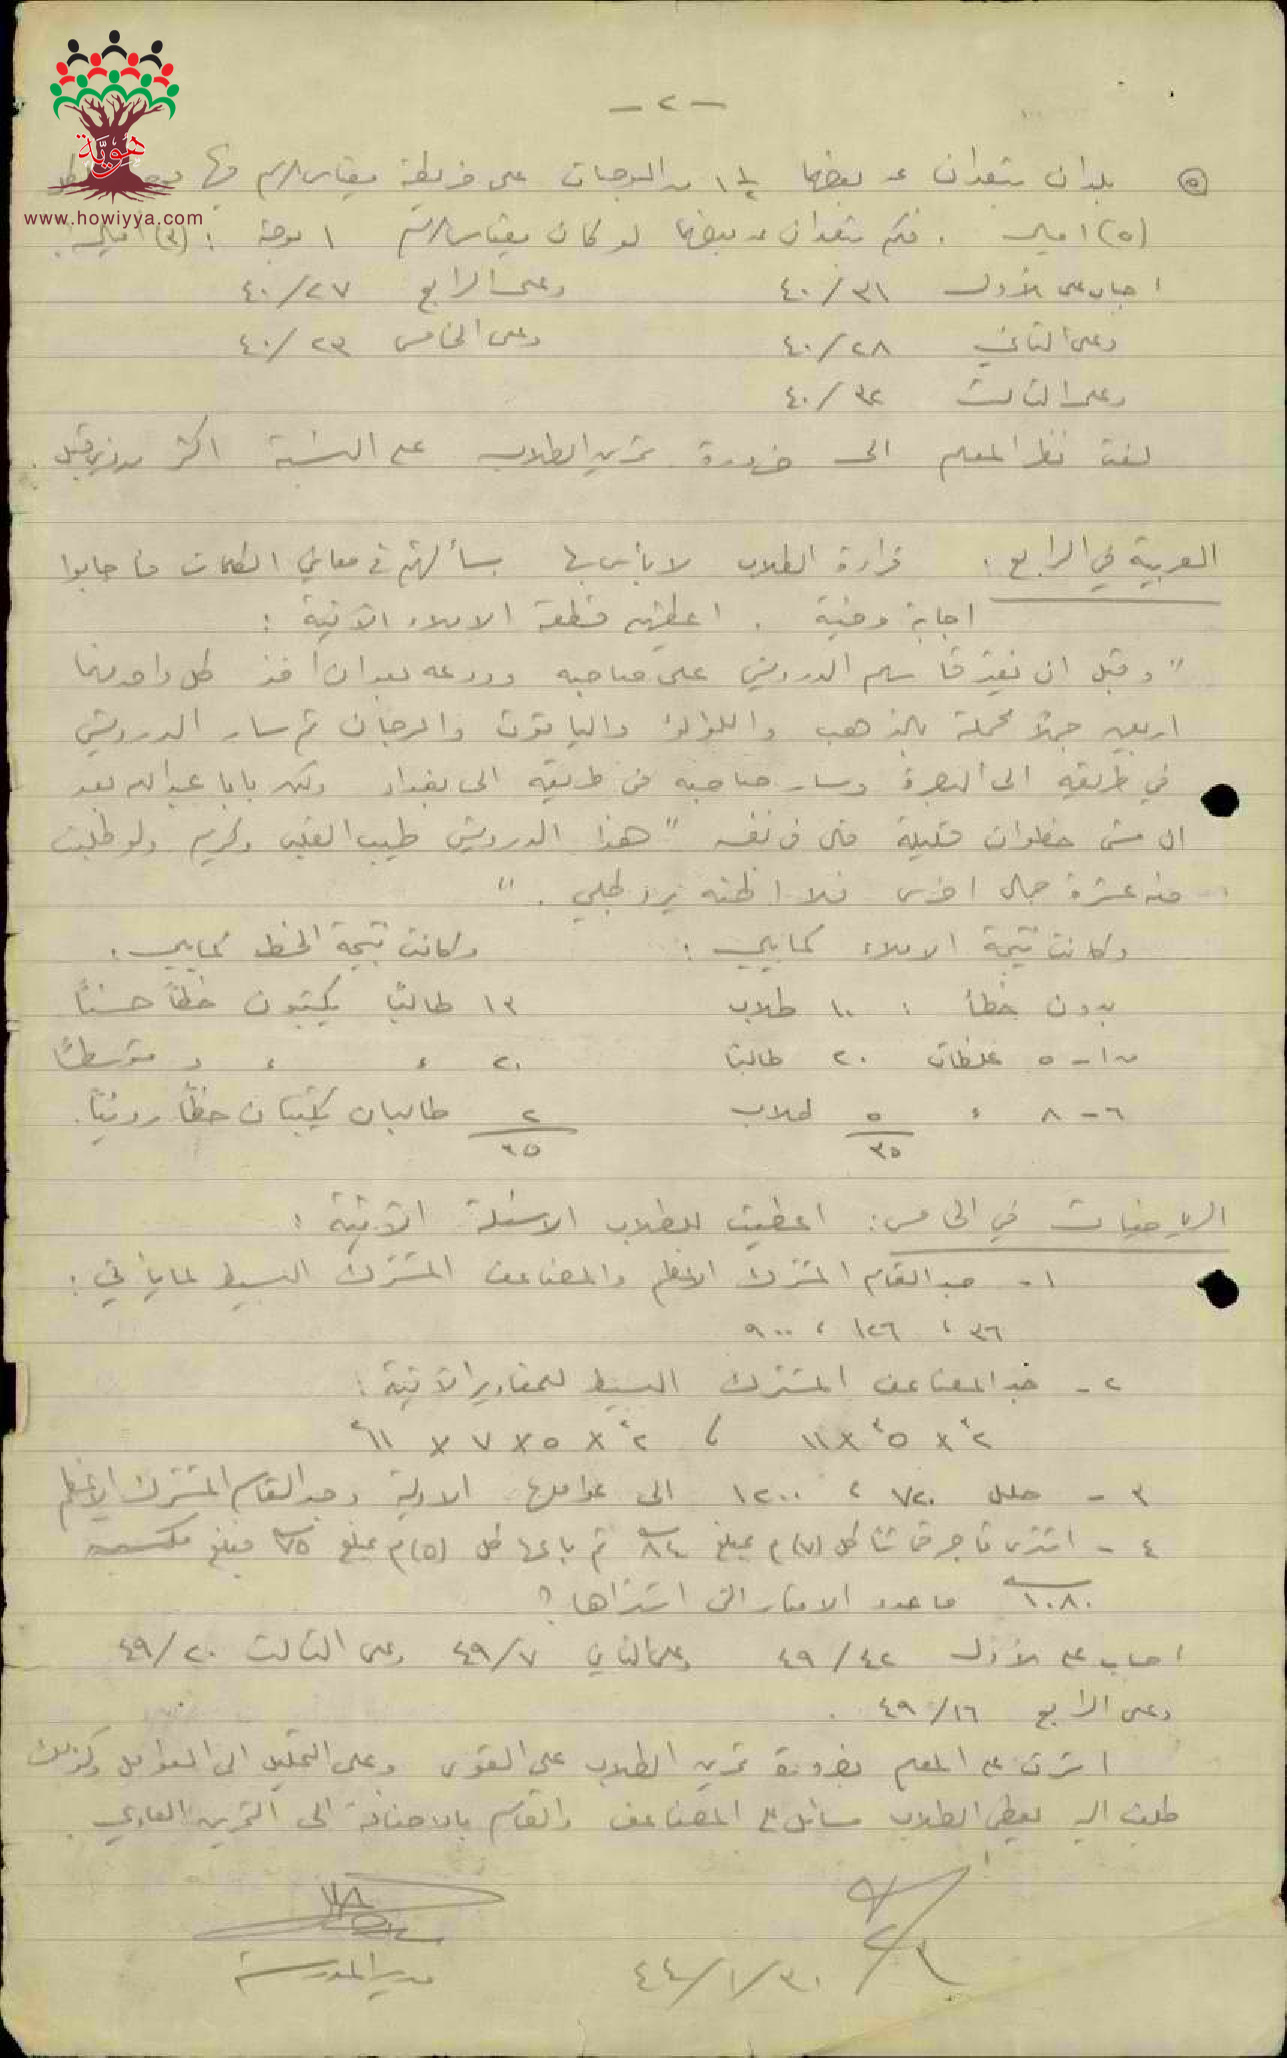 هوية
www.howiyya.com
- ٢ -
٥ بلدان يبعدان عن بعضهما ١ ١/٢ من البوصات على خريطة مقياس الرسم فيها بوصة
(٥) اميال . فكم يبعدان عن بعضهما لو كان مقياس الرسم ١ بوصة : (٣) اميال .
اجاب على الأول ٣١/٤٠ وعلى الرابع ٢٧/٤٠
وعلى الثاني ٢٨/٤٠ وعلى الخامس ٢٣/٤٠
وعلى الثالث ٣٢/٤٠
لفت نظر المعلم الى ضرورة تمرين الطلاب على النسبة اكثر من ذي قبل .
العربية في الرابع : قراءة الطلاب لا بأس بها سألتهم في معاني الكلمات فاجابوا
اجابة مرضية . اعطيتهم قطعة الاملاء الآتية :
" وقبل ان يفترقا سلم الدرويش على صاحبه وودعه بعد ان أخذ كل واحد منهما
اربعين جملاً محملة بالذهب واللؤلؤ والياقوت والمرجان ثم سار الدرويش
في طريقه الى البصرة وسار صاحبه في طريقه الى بغداد ولكن بابا عبدالله بعد
ان مشى خطوات قليلة قال في نفسه " هذا الدرويش طيب القلب وكريم ولو طلبت
منه عشرة جمال اخرى فلا اظنه يرد طلبي . "
وكانت نتيجة الاملاء كما يلي : وكانت نتيجة الخط كما يلي :
بدون خطأ : ١٠ طلاب ١٣ طالبًا يكتبون خطًا حسنًا
من ١ - ٥ غلطات ٢٠ طالبًا ٢٠ ء ء ء متوسطًا
٦ - ٨ ء ٥ طلاب ٢ طالبان يكتبان خطًا رديئًا .
٣٥ ٣٥
الرياضيات في الخامس : اعطيت للطلاب الاسئلة الآتية :
١ - جد القاسم المشترك الاعظم والمضاعف المشترك البسيط لما يأتي :
٣٦ ، ١٢٦ ، ٩٠٠
٢ - جد المضاعف المشترك البسيط للمقادير الآتية :
٢ × ٥ × ١١ ، ٢ × ٥ × ٧ × ١١
٣ - حلل ٧٢٠ ، ١٢٠٠ الى عواملها الاولية وجد القاسم المشترك الاعظم
٤ - اشترى تاجر قماشًا كل (٧) م بمبلغ ٨٤ ثم باعها كل (٥) م بمبلغ ٧٥ فبلغ مكسبه
١٠٨٠ ما عدد الامتار التي اشتراها ؟
اجاب على الأول ٤٢/٤٩ وعلى الثاني ٧/٤٩ وعلى الثالث ٢٠/٤٩
وعلى الرابع ١٦/٤٩ .
اشرت على المعلم بضرورة تمرين الطلاب على القوى وعلى التحليل الى العوامل وكذلك
طلبت اليه يعطي الطلاب مسائل على المضاعف والقاسم بالاضافة الى التمرين العادي .
مدير المدرسة ٣٠/١/٤٤